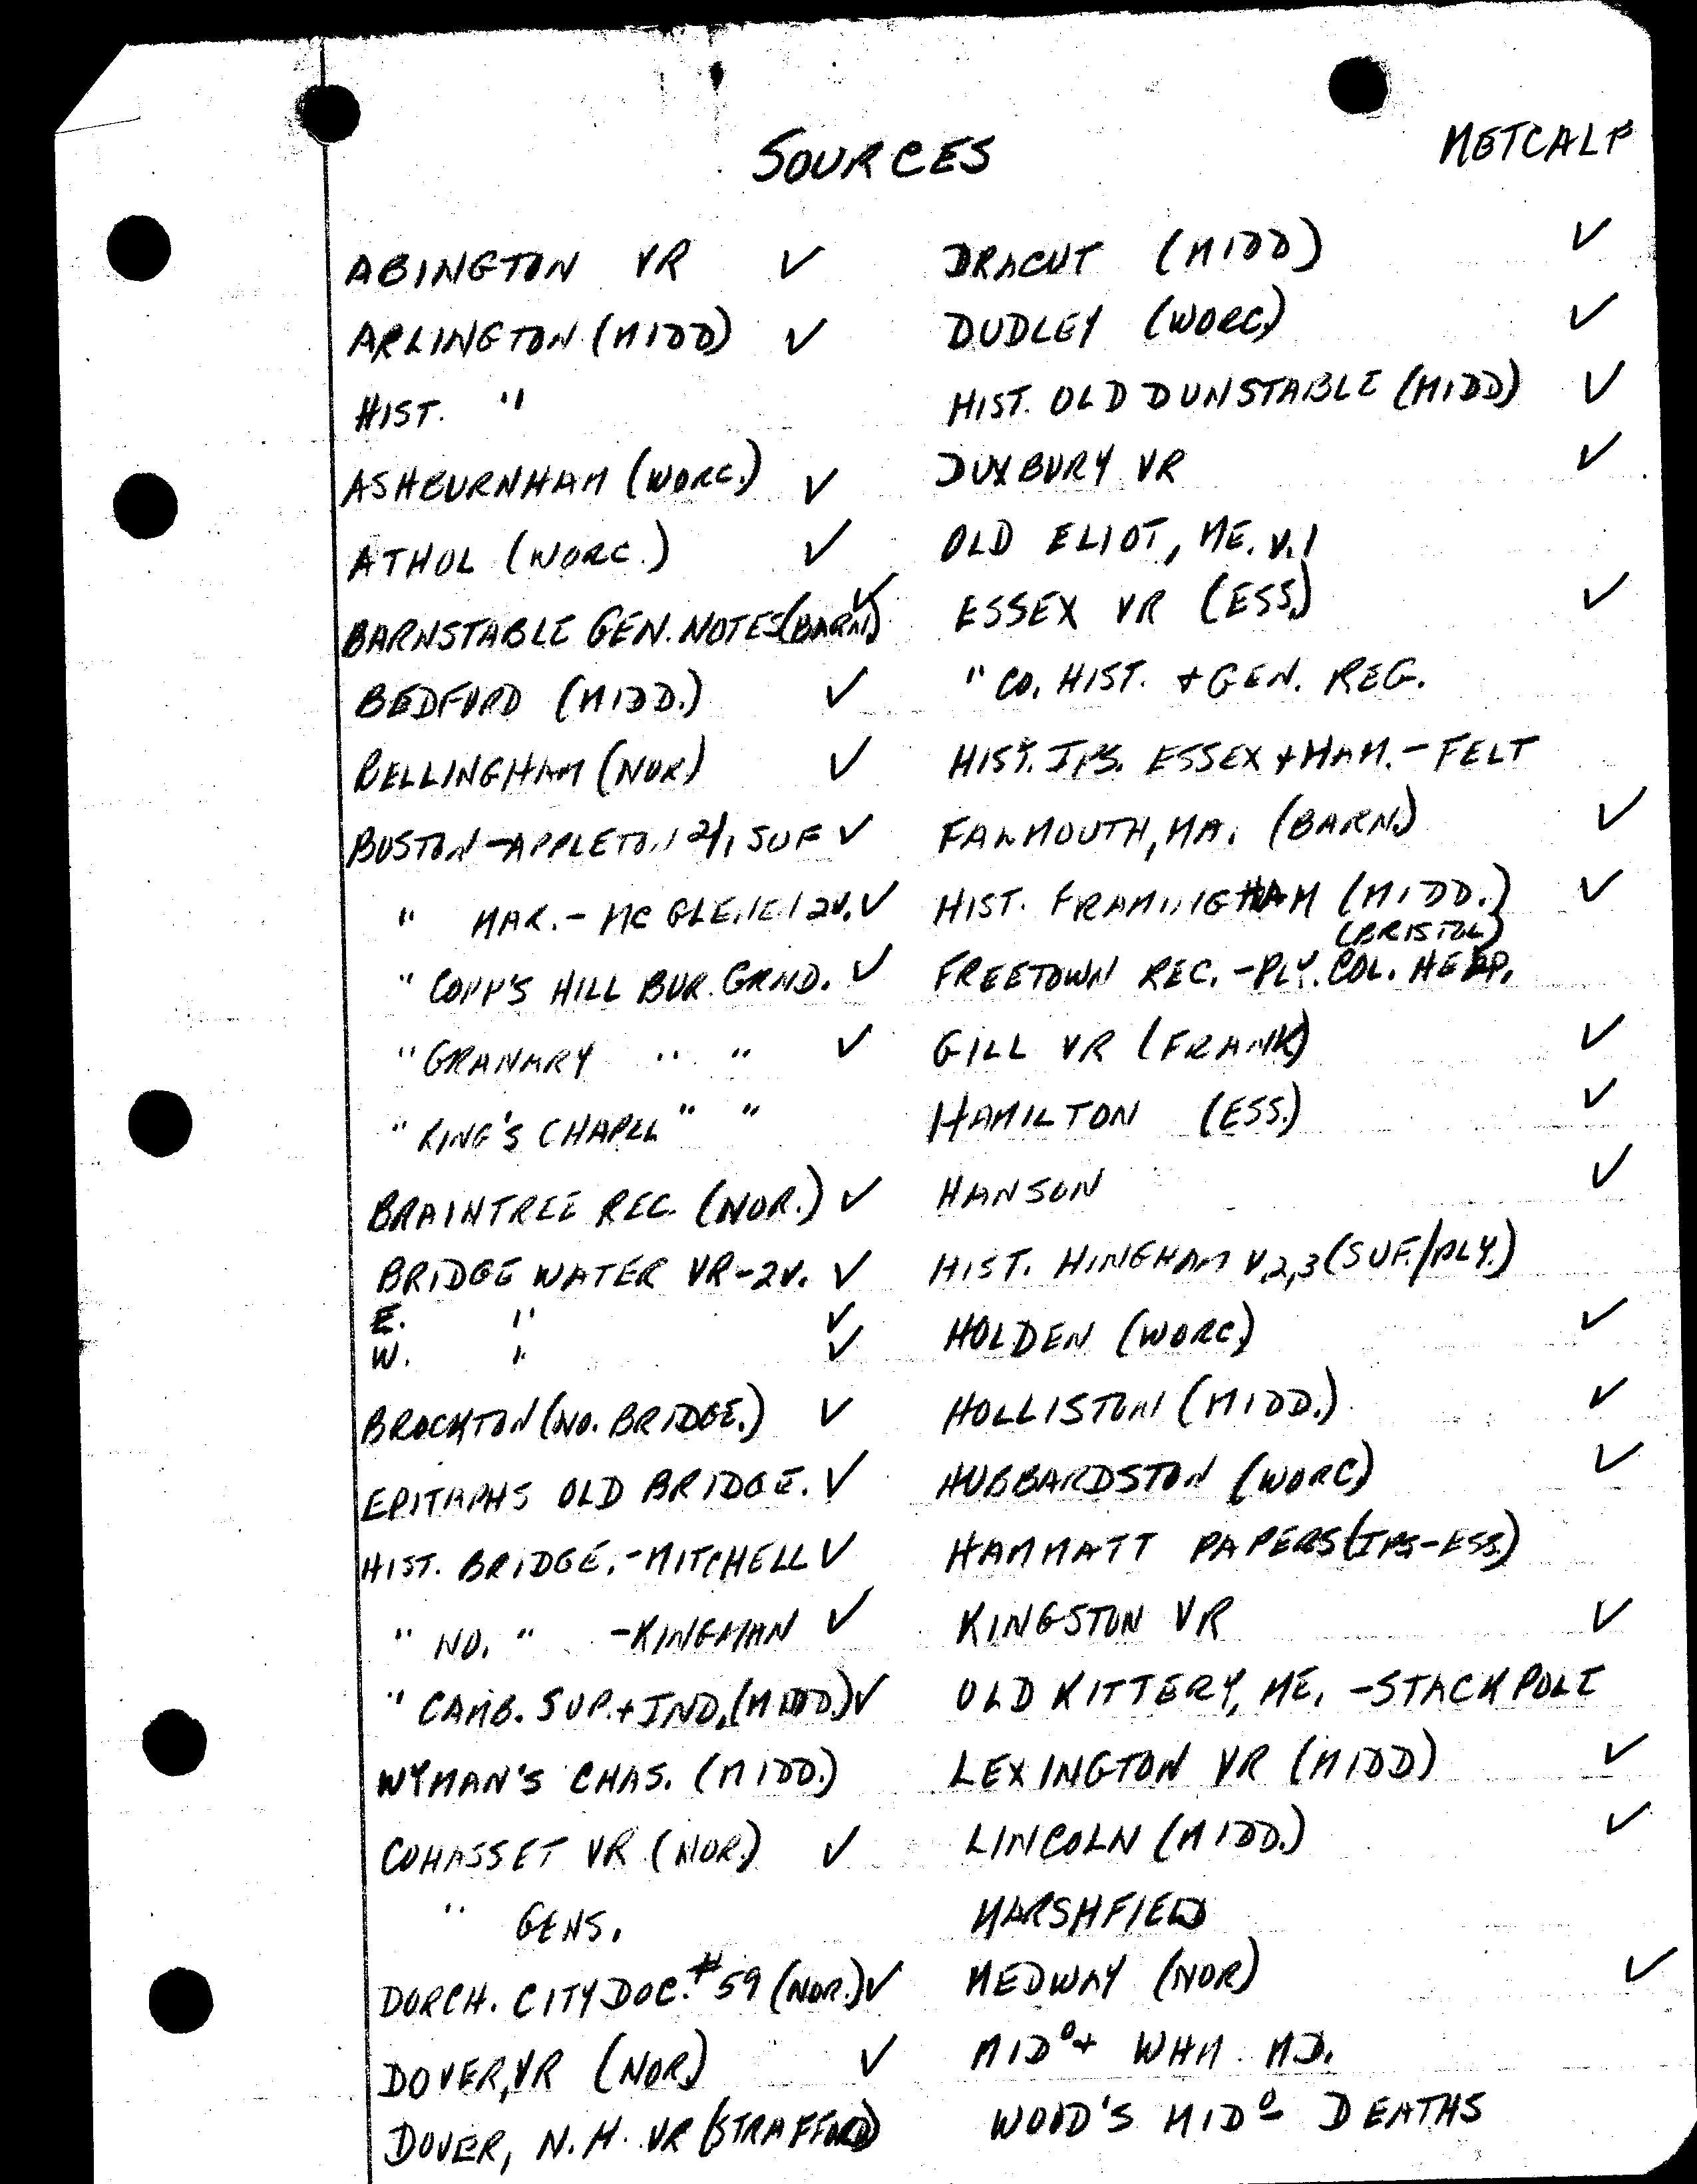 SOURCES
METCALF
ABINGTON VR ✓
ARLINGTON (MIDD) ✓
HIST. "
ASHBURNHAM (WORC.) ✓
ATHOL (WORC.) ✓
BARNSTABLE GEN. NOTES (BARN) ✓
BEDFORD (MIDD.) ✓
BELLINGHAM (NOR) ✓
BOSTON - APPLETON SUF ✓
" MAR. - MC GLENEN 2V. ✓
" COPP'S HILL BUR. GRND. ✓
" GRANARY " " ✓
" KING'S CHAPEL " "
BRAINTREE REC. (NOR.) ✓
BRIDGEWATER VR - 2V. ✓
E. " ✓
W. " ✓
BROCKTON (NO. BRIDGE.) ✓
EPITAPHS OLD BRIDGE. ✓
HIST. BRIDGE. - MITCHELL ✓
" NO. " - KINGMAN ✓
" CAMB. SUP. + IND. (MIDD.) ✓
WYMAN'S CHAS. (MIDD.)
COHASSET VR (NOR.) ✓
" GENS.
DORCH. CITY DOC. #59 (NOR.) ✓
DOVER, VR (NOR.) ✓
DOVER, N.H. VR (STRAFFORD)
DRACUT (MIDD) ✓
DUDLEY (WORC.) ✓
HIST. OLD DUNSTABLE (MIDD) ✓
DUXBURY VR ✓
OLD ELIOT, ME. V.1
ESSEX VR (ESS.) ✓
" CO. HIST. + GEN. REG.
HIST. IPS. ESSEX + HAM. - FELT
FALMOUTH, MA. (BARN.) ✓
HIST. FRAMINGHAM (MIDD.) ✓
(BRISTOL)
FREETOWN REC. - PLY. COL. HELP.
GILL VR (FRANK) ✓
HAMILTON (ESS.) ✓
HANSON ✓
HIST. HINGHAM V.2,3 (SUF./PLY.)
HOLDEN (WORC.) ✓
HOLLISTON (MIDD.) ✓
HUBBARDSTON (WORC) ✓
HAMMATT PAPERS (IPS-ESS.)
KINGSTON VR ✓
OLD KITTERY, ME. - STACKPOLE
LEXINGTON VR (MIDD) ✓
LINCOLN (MIDD.) ✓
MARSHFIELD
MEDWAY (NOR) ✓
MIDº + WHM. MJ.
WOOD'S MIDº DEATHS